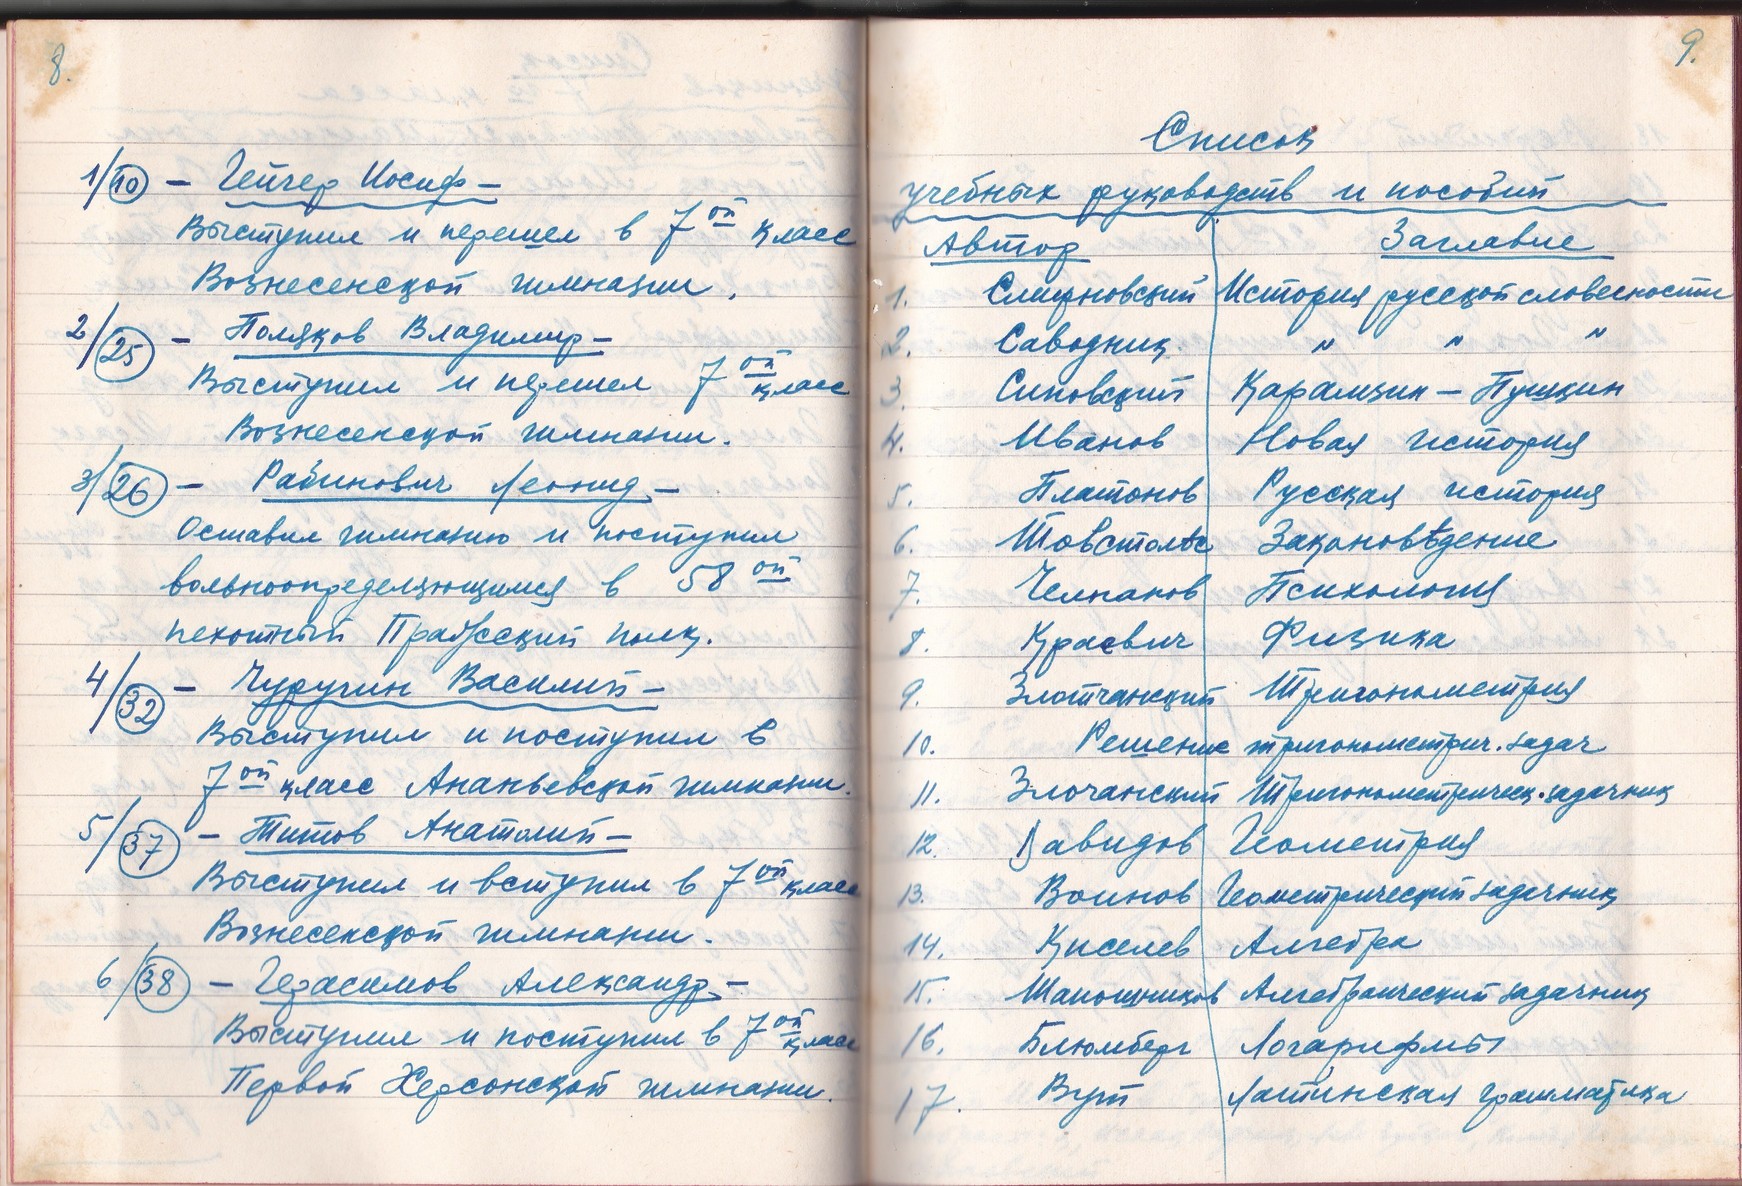 8.
1/10 – Гейчер Иосиф –
Выступил и перешел в 7ой класс
Вознесенской гимназии.
2/25 – Поляков Владимир –
Выступил и перешел 7ой класс
Вознесенской гимназии.
3/26 – Рабинович Леонид –
Оставил гимназию и поступил
вольноопределяющимся в 58ой
пехотный Прагсский полк.
4/32 – Чуручин Василий –
Выступил и поступил в
7ой класс Ананьевской гимназии.
5/37 – Титов Анатолий –
Выступил и вступил в 7ой класс
Вознесенской гимназии.
6/38 – Герасимов Александр –
Выступил и поступил в 7ой класс
Первой Херсонской гимназии.
9.
Список
учебных руководств и пособий
Автор Заглавие
1. Смирновский История русской словесности
2. Саводник " " "
3. Сиповский Карамзин – Пушкин
4. Иванов Новая история
5. Платонов Русская история
6. Товстолѣс Законовѣдение
7. Челпанов Психология
8. Краевич Физика
9. Злотчанский Тригонометрия
10. Решение тригонометрич. задач
11. Злочанский Тригонометрическ. задачник
12. Давидов Геометрия
13. Воинов Геометрический задачник
14. Киселев Алгебра
15. Шапошников Алгебраический задачник
16. Блюмберг Логарифмы
17. Вут Латинская грамматика